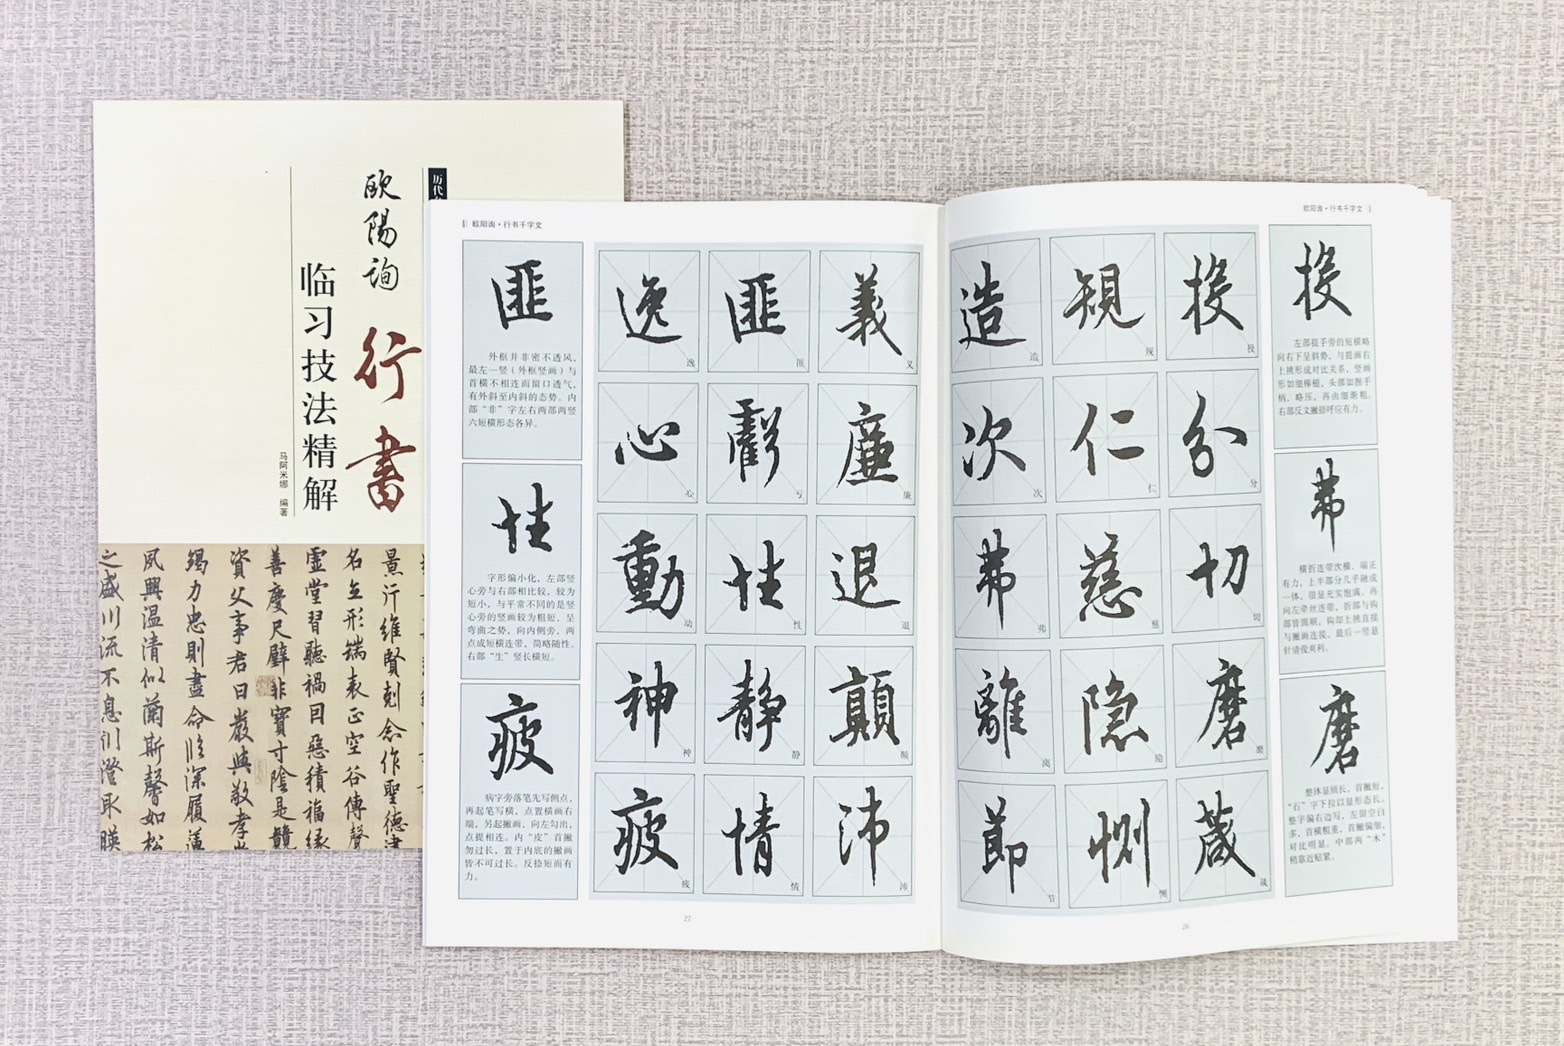 历代
欧陽询
行書
临习技法精解
马阿米娜 编著
景行維賢剋念作聖德建
名立形端表正空谷傳聲
虛堂習聽禍因惡積福緣
善慶尺璧非寶寸陰是競
資父事君曰嚴與敬孝當
竭力忠則盡命臨深履薄
夙興温清似蘭斯馨如松
之盛川流不息川澄取暎
欧阳询·行书千字文
投
左部提手旁的短横略
向右下呈斜势，与提画右
上挑形成对比关系，竖画
形如细棒槌，头部如握手
柄，略压，再由细渐粗。
右部反文撇捺呼应有力。
弗
横折连带次横，端正
有力，上半部分几乎融成
一体，很显充实饱满。再
向左牵丝连带，折部与钩
部皆圆顺，钩却上挑直接
与撇画连接，最后一竖悬
针请俊爽利。
磨
整体显颀长，首撇短，
“石”字下拉以显形态长。
整字偏右边写，左留空白
多，首横粗重，首撇偏细，
对比明显。中部两“木”
稍靠近贴紧。
投 投
分 分
切 切
磨 磨
箴 箴
規 规
仁 仁
慈 慈
隐 隐
惻 恻
造 造
次 次
弗 弗
離 离
節 节
26
欧阳询·行书千字文
義 义
廉 廉
退 退
顛 颠
沛 沛
匪 匪
虧 亏
性 性
静 静
情 情
逸 逸
心 心
動 动
神 神
疲 疲
匪
外框并非密不透风，
最左一竖（外框竖画）与
首横不相连而留口透气，
有外斜至内斜的态势。内
部“非”字左右两部两竖
六短横形态各异。
性
字形偏小化，左部竖
心旁与右部相比较，较为
短小，与平常不同的是竖
心旁的竖画较为粗短，呈
弯曲之势，向内侧旁，两
点成短横连带，简略随性。
右部“生”竖长横短。
疲
病字旁落笔先写侧点，
再起笔写横，点置横画右
端，另起撇画，向左勾出，
点提相连。内“皮”首撇
勿过长，置于内底的撇画
皆不可过长。反捺短而有
力。
27